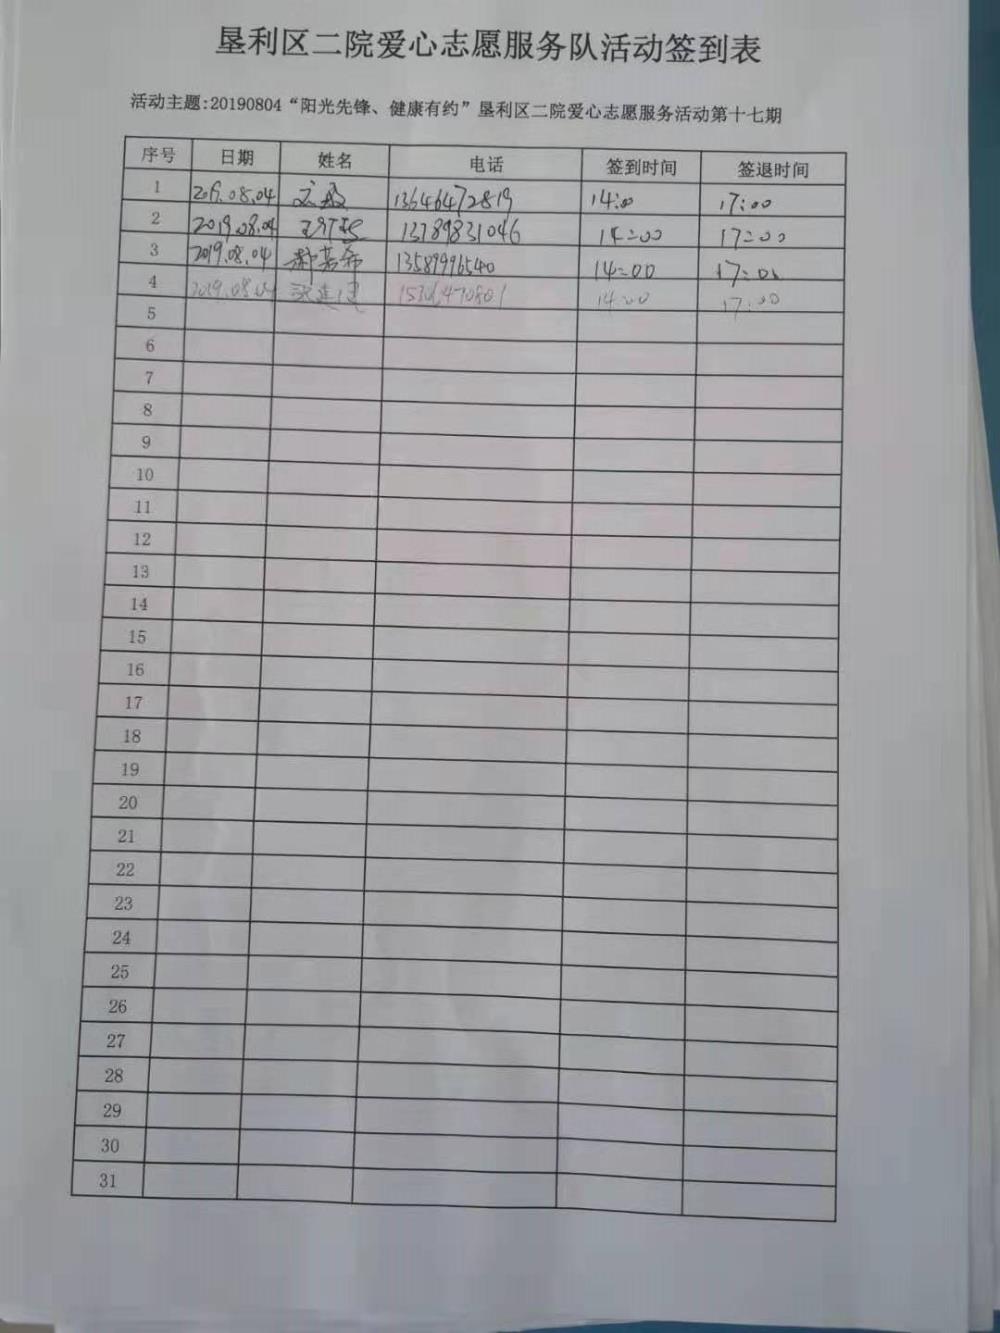 垦利区二院爱心志愿服务队活动签到表
活动主题:20190804“阳光先锋、健康有约”垦利区二院爱心志愿服务活动第十七期
序号 日期 姓名 电话 签到时间 签退时间
1 2019.08.04 13646472819 14:00 17:00
2 2019.08.04 13789831046 14:00 17:00
3 2019.08.04 郝营希 13589996540 14:00 17:00
4 2019.08.04 14:00 17:00
5
6
7
8
9
10
11
12
13
14
15
16
17
18
19
20
21
22
23
24
25
26
27
28
29
30
31